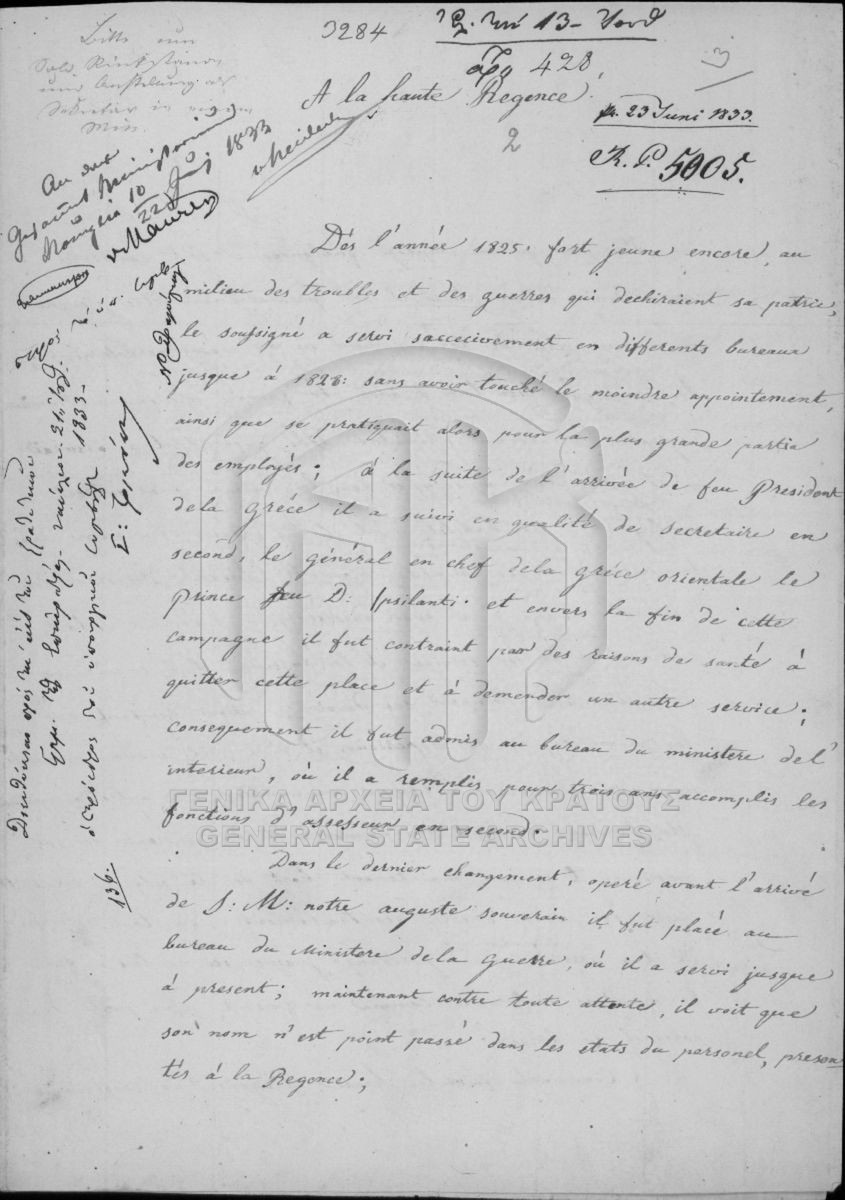 3284
13
αρ. 428
Bitte um
A la haute Regence
pr. 23 Juni 1833.
2
R. P. 5005.
An das
Gesammt Ministerium
Nauplia 10/22 Juni 1833
vMaurer
vHeideck
Dés l'année 1825. fort jeune encore, au
milieu des troubles et des guerres qui dechiraient sa patrie,
le soussigné a servi saccecivement en differents bureaux
jusque á 1828: sans avoir touché le moindre appointement,
ainsi que se pratiquait alors pour la plus grande partia
des employés; á la suite de l'arrivée de feu President
dela Gréce il a suivi en qualité de secretaire en
second, le général en chef dela Gréce orientale le
prince feu D: Ipsilanti. et envers la fin de cette
campagne il fut contraint par des raisons de santé á
quitter cette place et á demender un autre service;
consequement il fut admis au bureau du ministere del'
interieur, où il a remplis pour trois ans accomplis les
fonctions d'assesseur en second.
Dans le dernier changement, operé avant l'arrivé
de S: M: notre auguste souverain il fut placé au
bureau du Ministere dela Guerre, où il a servi jusque
á present; maintenant contre toute attente, il voit que
son nom n'est point passé dans les etats du personel, presen-
tés á la Regence;
1833
136.
ΓΕΝΙΚΑ ΑΡΧΕΙΑ ΤΟΥ ΚΡΑΤΟΥΣ
GENERAL STATE ARCHIVES